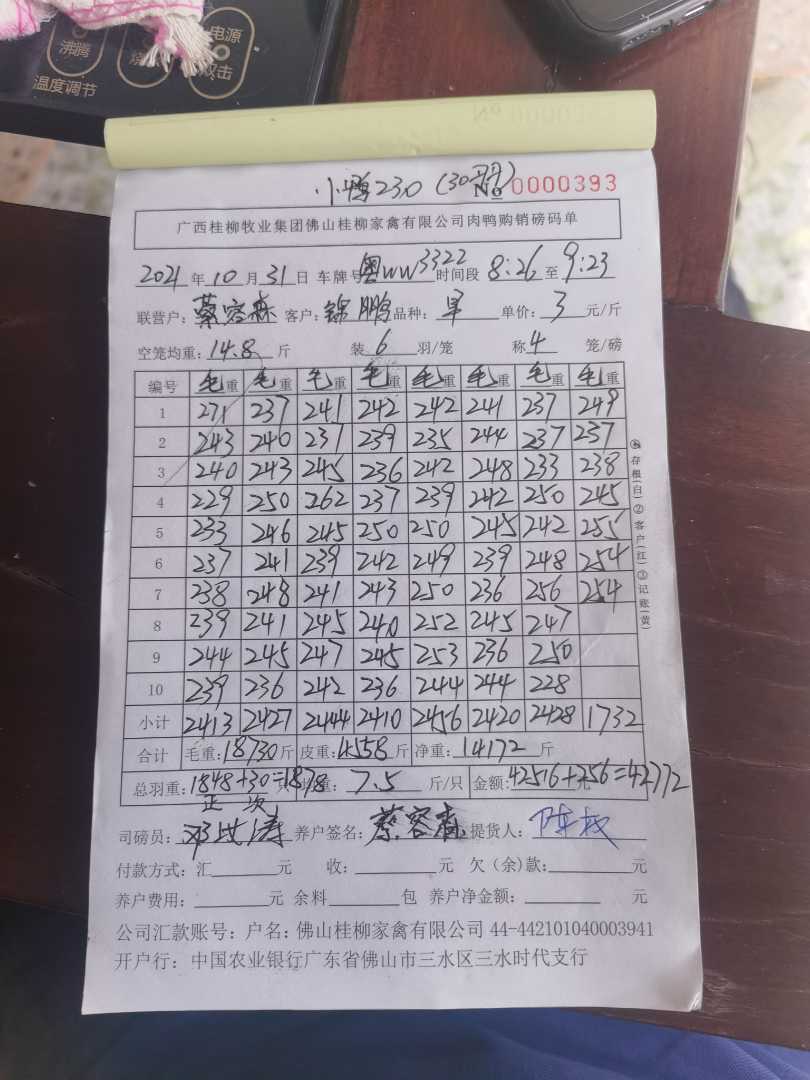 沸腾
电源
双击
温度调节
小鸭230 (30羽)
No 0000393
广西桂柳牧业集团佛山桂柳家禽有限公司肉鸭购销磅码单
2021年10月31日 车牌号粤WW3322时间段 8:26至9:23
联营户:蔡容森 客户:锦鹏 品种:早 单价:3元/斤
空笼均重:14.8斤 装6羽/笼 称4笼/磅
编号 毛重 毛重 毛重 毛重 毛重 毛重 毛重 毛重
1 271 237 241 242 242 241 237 249
2 243 240 237 239 235 244 237 237
3 240 243 245 236 242 248 233 238
4 229 250 262 237 239 242 250 245
5 233 246 245 250 250 245 242 255
6 237 241 239 242 249 239 248 254
7 238 248 241 243 250 236 256 254
8 239 241 245 240 252 245 247
9 244 245 247 245 253 236 250
10 239 236 242 236 244 244 228
小计 2413 2427 2444 2410 2456 2420 2428 1732
合计 毛重:18730斤 皮重:4558斤 净重:14172斤
总羽重:1848+30=1878只 重:7.5斤/只 金额:42516+256=42772元
正 次
司磅员: 养户签名:蔡容森 提货人:
付款方式:汇 元 收: 元 欠(余)款: 元
养户费用: 元 余料 包 养户净金额: 元
公司汇款账号:户名:佛山桂柳家禽有限公司 44-442101040003941
开户行:中国农业银行广东省佛山市三水区三水时代支行
①存根(白)②客户(红)③记账(黄)